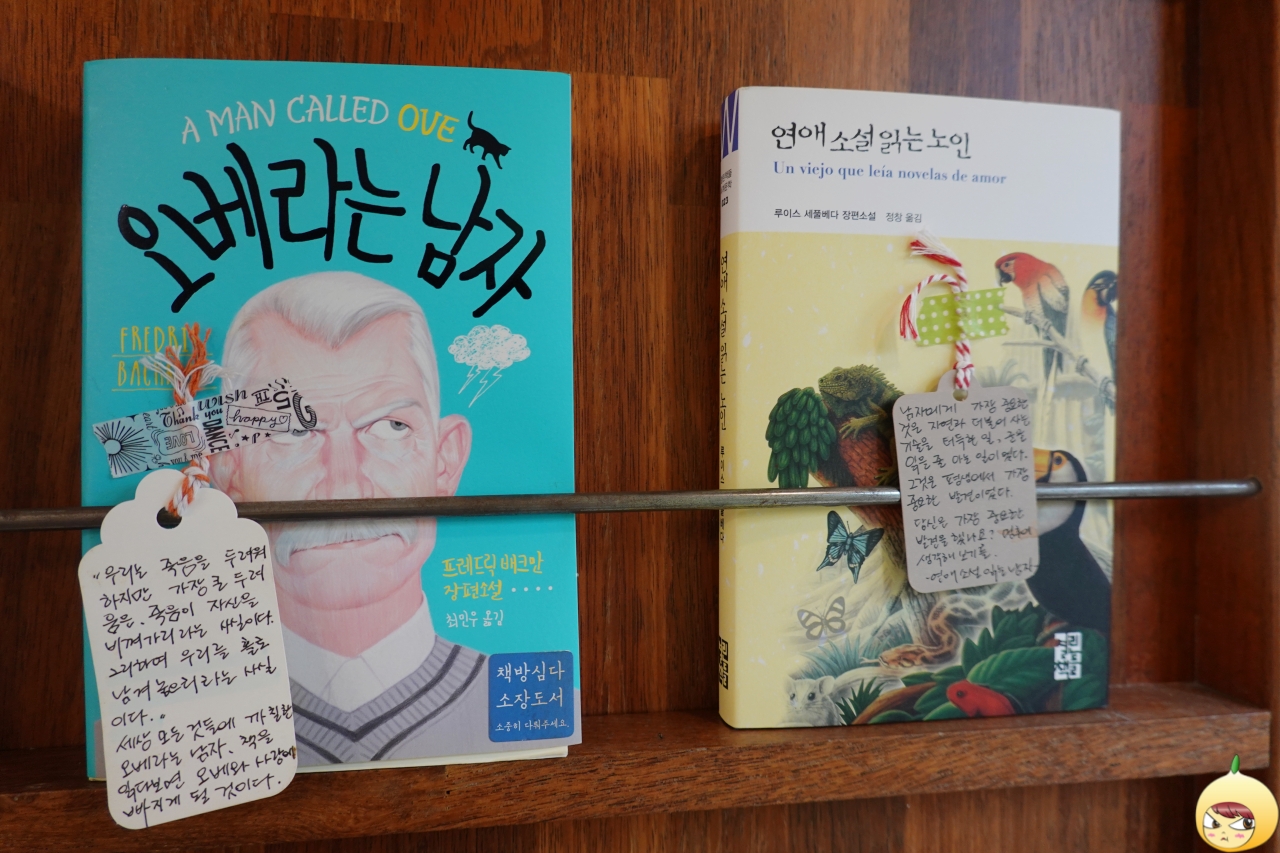 A MAN CALLED OVE
오베라는 남자
FREDRI
BACK
Thank you
wish
happy
LOVE
DANCE
"우리는 죽음을 두려워
하지만 가장 큰 두려
움은, 죽음이 자신을
비껴가리라는 사실이다.
그리하여 우리를 홀로
남겨 놓으리라는 사실
이다."
세상 모든 것들에 까칠한
오베라는 남자. 책을
읽다보면 오베와 사랑에
빠지게 될 것이다.
프레드릭 배크만
장편소설 ····
최민우 옮김
책방심다
소장도서
소중히 다뤄주세요.
연애 소설 읽는 노인
Un viejo que leía novelas de amor
루이스 세풀베다 장편소설 정창 옮김
연애 소설 읽는 노인 루이스
남자에게 가장 중요한
것은 자연과 더불어 사는
기술을 터득한 일, 글을
읽을 줄 아는 일이었다.
그것은 평생에서 가장
중요한 발견이었다.
당신은 가장 중요한
발견을 했나요? 멈추어
생각해 보기를.
-연애 소설 읽는 남자
열린
책들